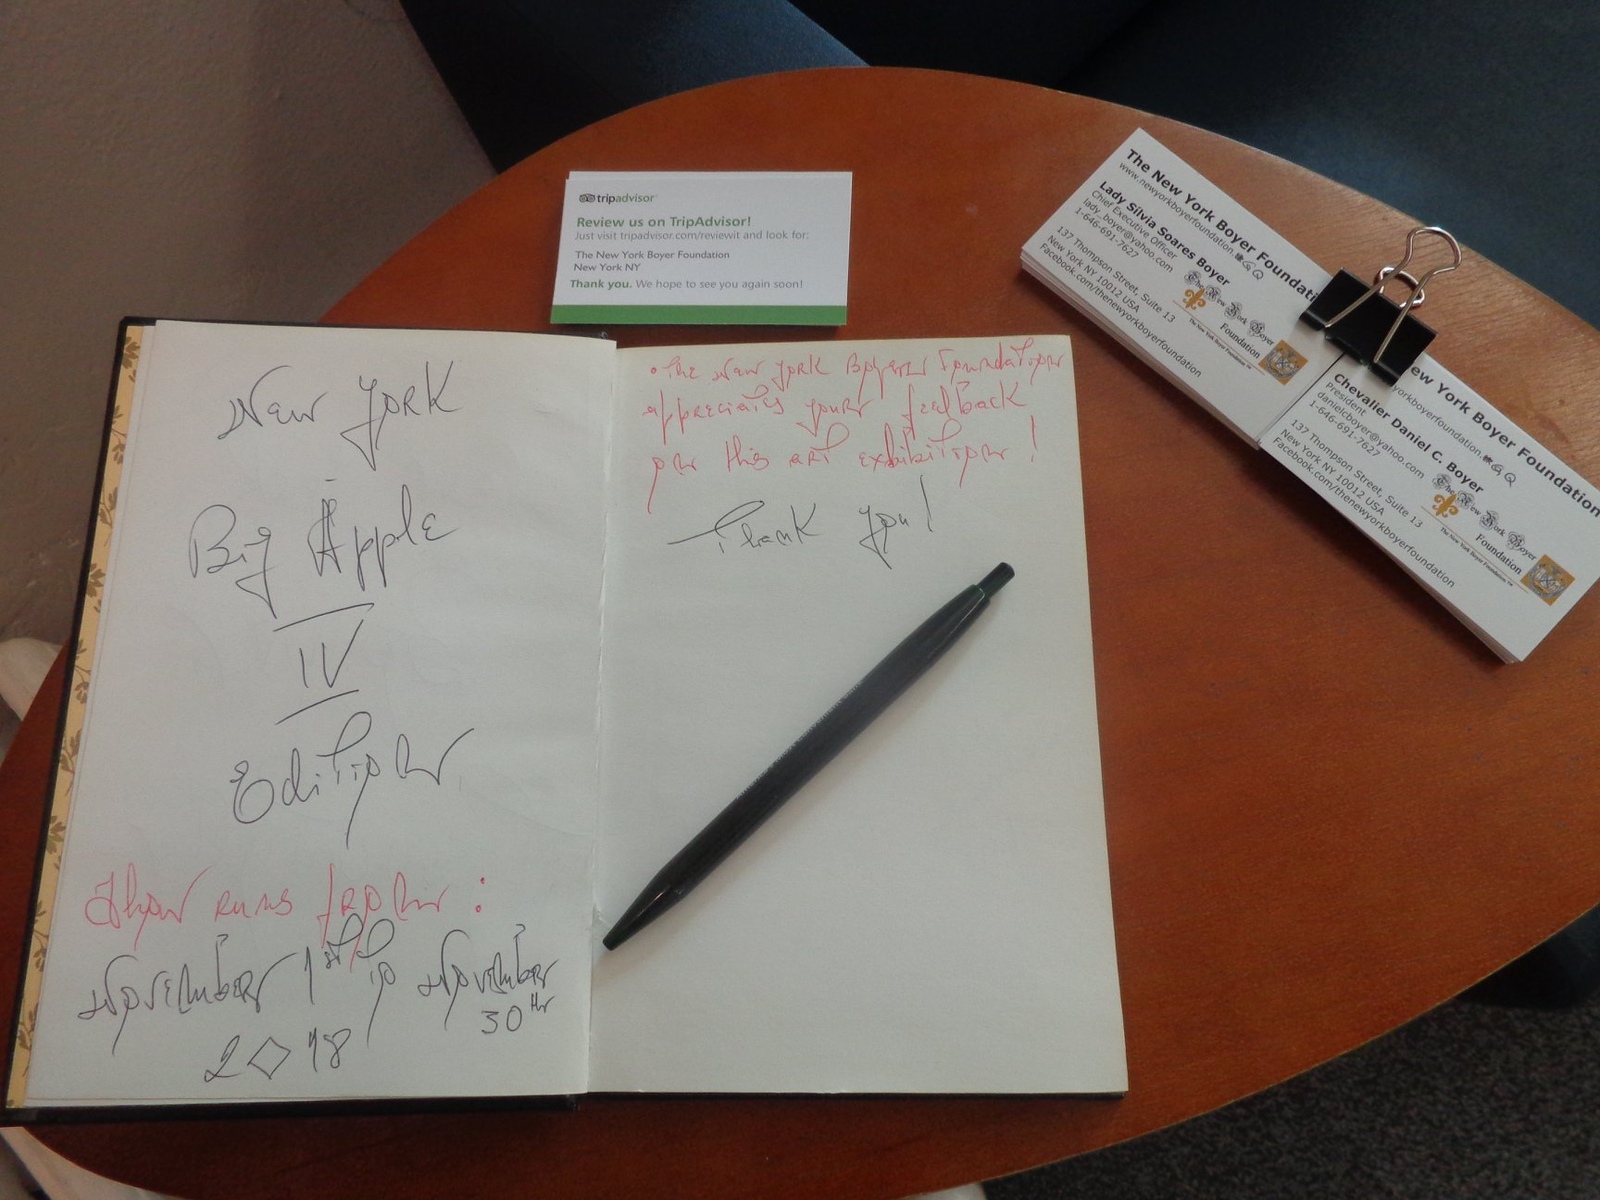 tripadvisor
Review us on TripAdvisor!
Just visit tripadvisor.com/reviewit and look for:
The New York Boyer Foundation
New York NY
Thank you. We hope to see you again soon!
The New York Boyer Foundati
www.newyorkboyerfoundation.
Lady Silvia Soares Boyer
Chief Executive Officer
lady_boyer@yahoo.com
1-646-691-7627
137 Thompson Street, Suite 13
New York NY 10012 USA
Facebook.com/thenewyorkboyerfoundation
The New York Boyer
Foundation
The New York Boyer Foundation
ew York Boyer Foundation
yorkboyerfoundation.
Chevalier Daniel C. Boyer
President
danielcboyer@yahoo.com
1-646-691-7627
137 Thompson Street, Suite 13
New York NY 10012 USA
Facebook.com/thenewyorkboyerfoundation
The New York Boyer
Foundation
The New York Boyer Foundation
New York
Big Apple
IV
Edition
Show runs from:
November 1st to November
30th
2018
• The New York Boyer Foundation
appreciates your feedback
on this art exhibition!
Thank you!